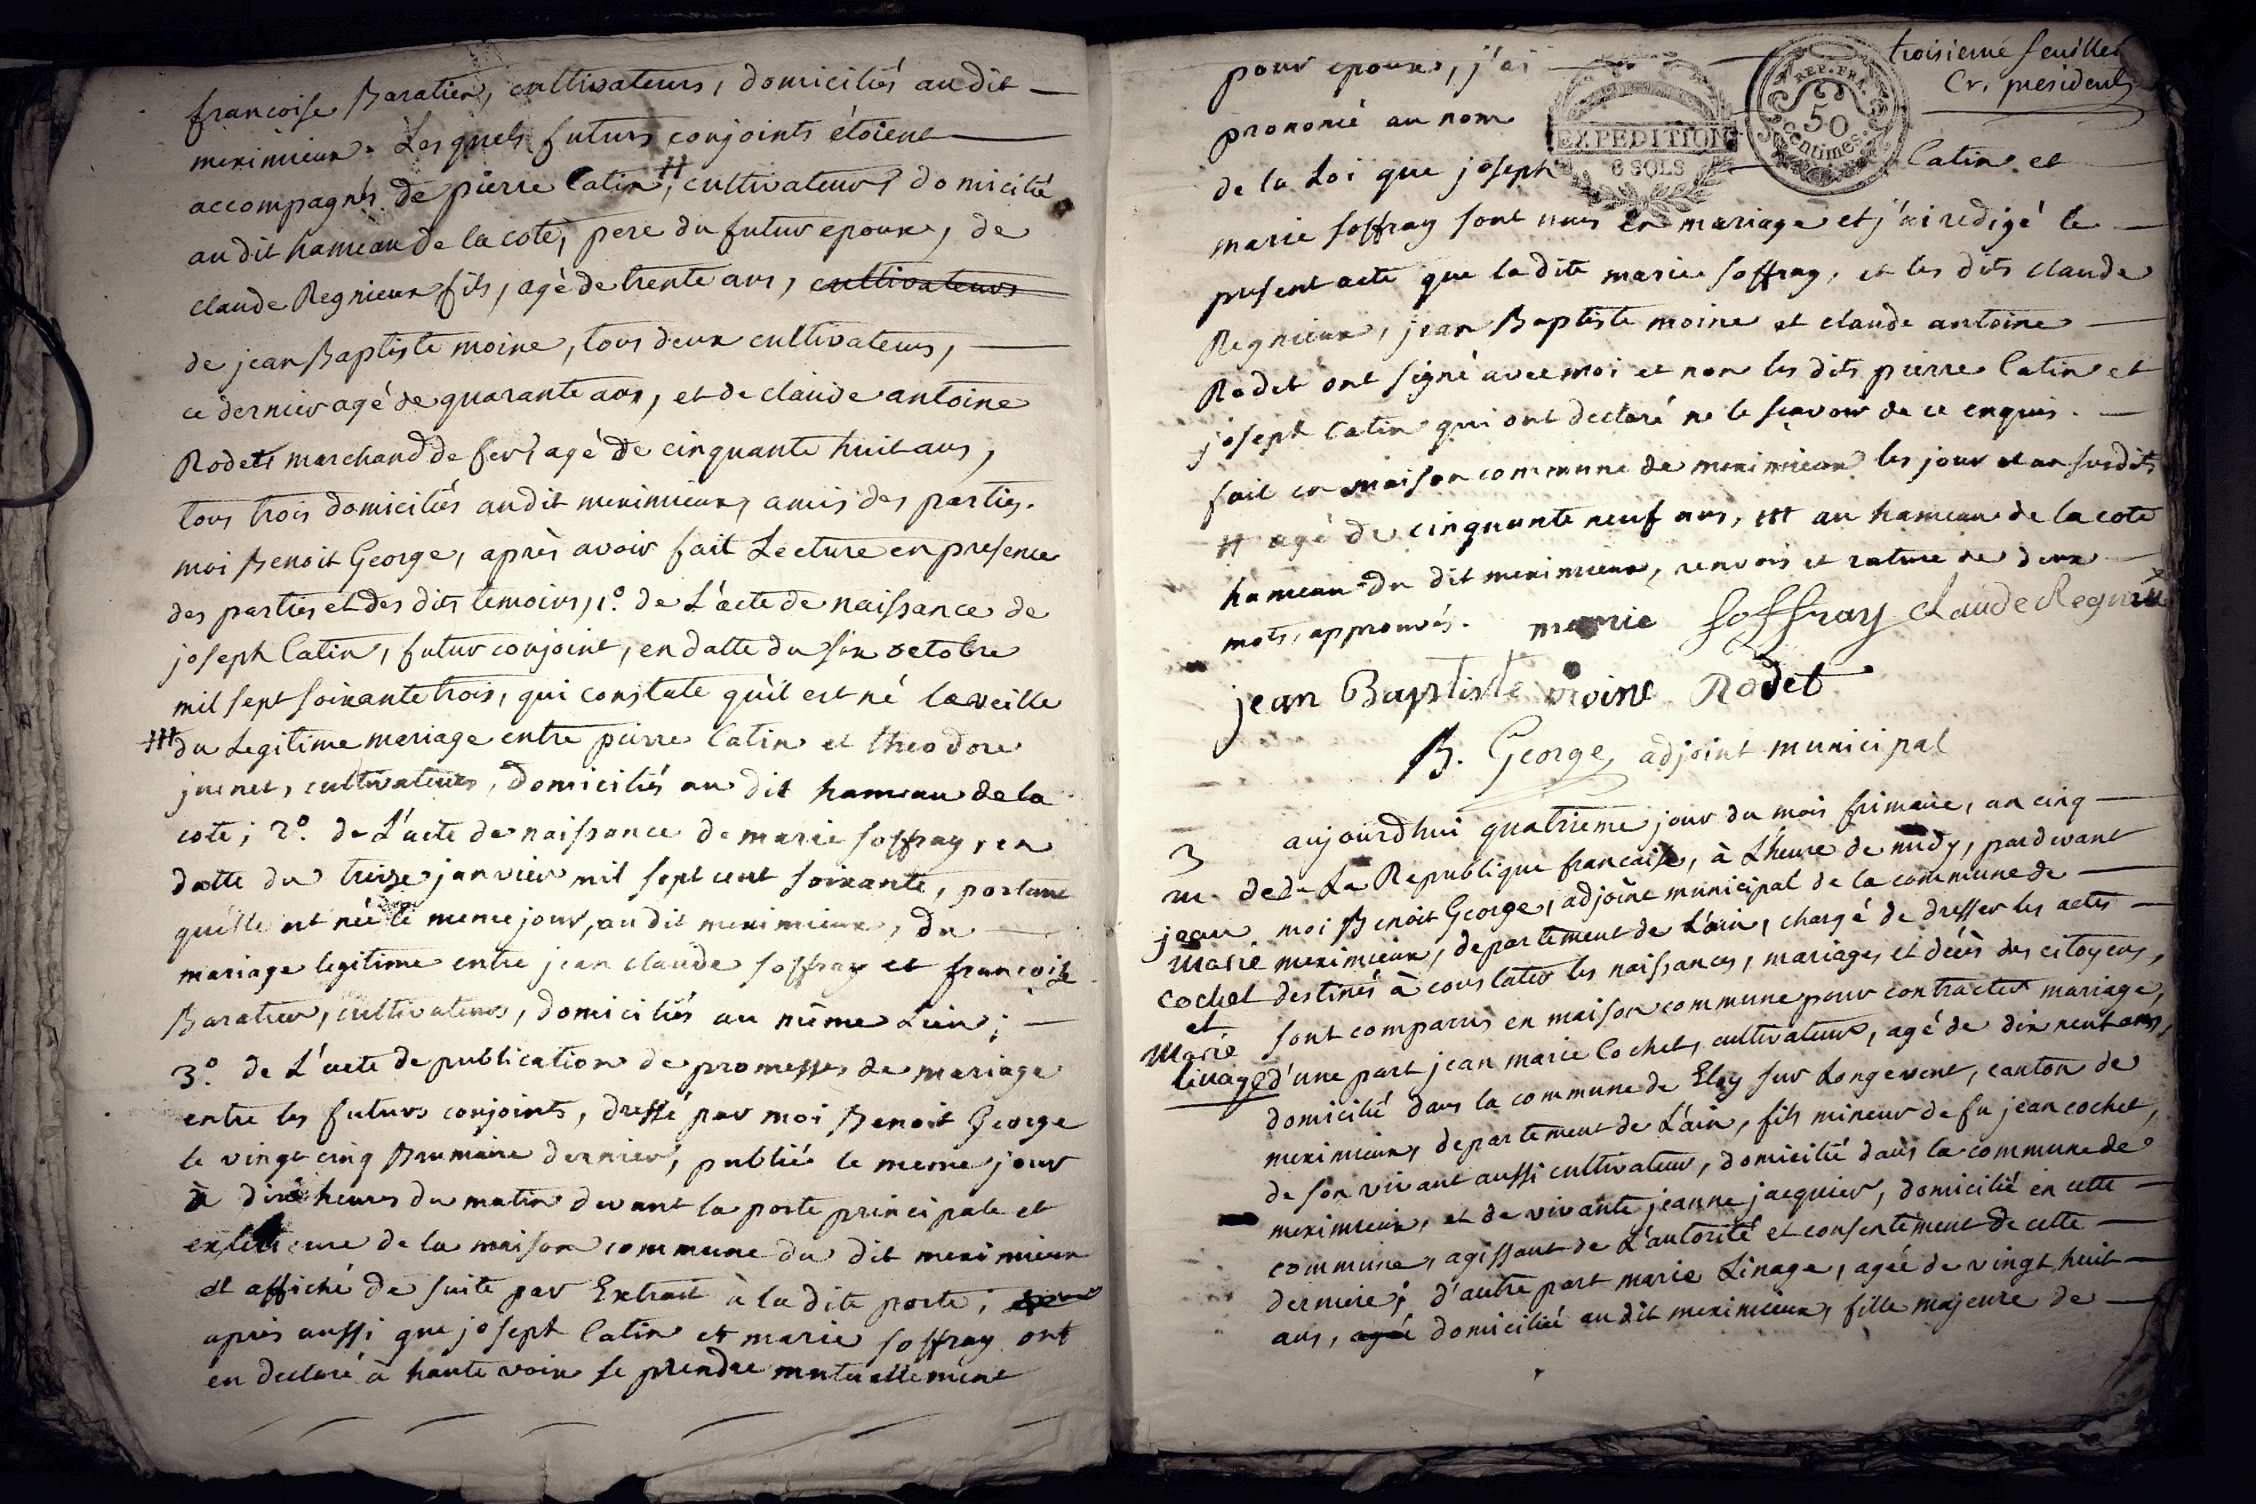 francoise Baratier, cultivateurs, domiciliés audit —
meximieux. Lesquels futurs conjoints étoient —
accompagnés de pierre Catin #, cultivateur, domicilié
audit hameau de la cote, pere du futur epoux, de
claude Regnieux fils, agé de trente ans, cultivateurs
de jean Baptiste moine, tous deux cultivateurs, —
ce dernier agé de quarante ans, et de claude antoine
Rodet marchand de fer, agé de cinquante huit ans,
tous trois domiciliés audit meximieux, amis des parties.
moi Benoit George, après avoir fait Lecture en presence
des parties et des dits temoins, 1°. de L'acte de naissance de
joseph Catin, futur conjoint, en datte du six octobre
mil sept soixante trois, qui constate qu'il est né la veille
du Legitime mariage entre pierre Catin et theodore
juenet, cultivateurs, domiciliés au dit hameau de la
cote; 2°. de L'acte de naissance de marie soffray, en
datte du treize janvier mil sept cent soixante, portant
qu'elle est née le meme jour, au dit meximieux, du —
mariage legitime entre jean claude soffray et francoise
Baratier, cultivateurs, domiciliés au même Lieu; —
3°. de L'acte de publication de promesses de mariage
entre les futurs conjoints, dressé par moi Benoit George
le vingt cinq Brumaire dernier, publié le meme jour
à dix heures du matin devant la porte principale et
exterieure de la maison commune du dit meximieux
et affiché de suite par Extrait à la dite porte;
après aussi que joseph Catin et marie soffray ont
en declaré à haute voix se prendre mutuellement
troisieme feuillet
Cr. president
REP. FRA.
50
Centimes.
EXPEDITION
8 SOLS
pour epoux, j'ai —
prononcé au nom
de la Loi que joseph Catin et —
marie soffray sont unis en mariage et j'ai redigé le —
present acte que la dite marie soffray, et les dits claude
Regnieux, jean Baptiste moine et claude antoine —
Rodet ont signé avec moi et non les dits pierre Catin et
joseph Catin qui ont declaré ne le sçavoir de ce enquis. —
fait en maison commune de meximieux les jour et an susdits
# agé de cinquante neuf ans, ## au hameau de la cote
hameau du dit meximieux, renvois et rature de deux —
mots, approuvés. marie soffray claude Regnieux
jean Baptiste moine Rodet
B. George, adjoint municipal
3
m. de
jean
marie
cochet
et
marie
Linage
aujourdhui quatrieme jour du mois frimaire, an cinq —
de La Republique francaise, à L'heure de midy, pardevant
moi Benoit George, adjoint municipal de la commune de —
meximieux, departement de L'ain, chargé de dresser les actes —
destinés à constater les naissances, mariages et décès des citoyens,
sont comparus en maison commune pour contracter mariage,
d'une part jean marie Cochet, cultivateur, agé de dix neuf ans,
domicilié dans la commune de Eloy sur Longevent, canton de
meximieux, departement de L'ain, fils mineur de fu jean cochet,
de son vivant aussi cultivateur, domicilié dans la commune de
meximieux, et de vivante jeanne jacquier, domicilié en cette —
commune, agissant de L'autorité et consentement de cette —
derniere; d'autre part marie Linage, agée de vingt huit —
ans, agée domiciliée au dit meximieux, fille majeure de —